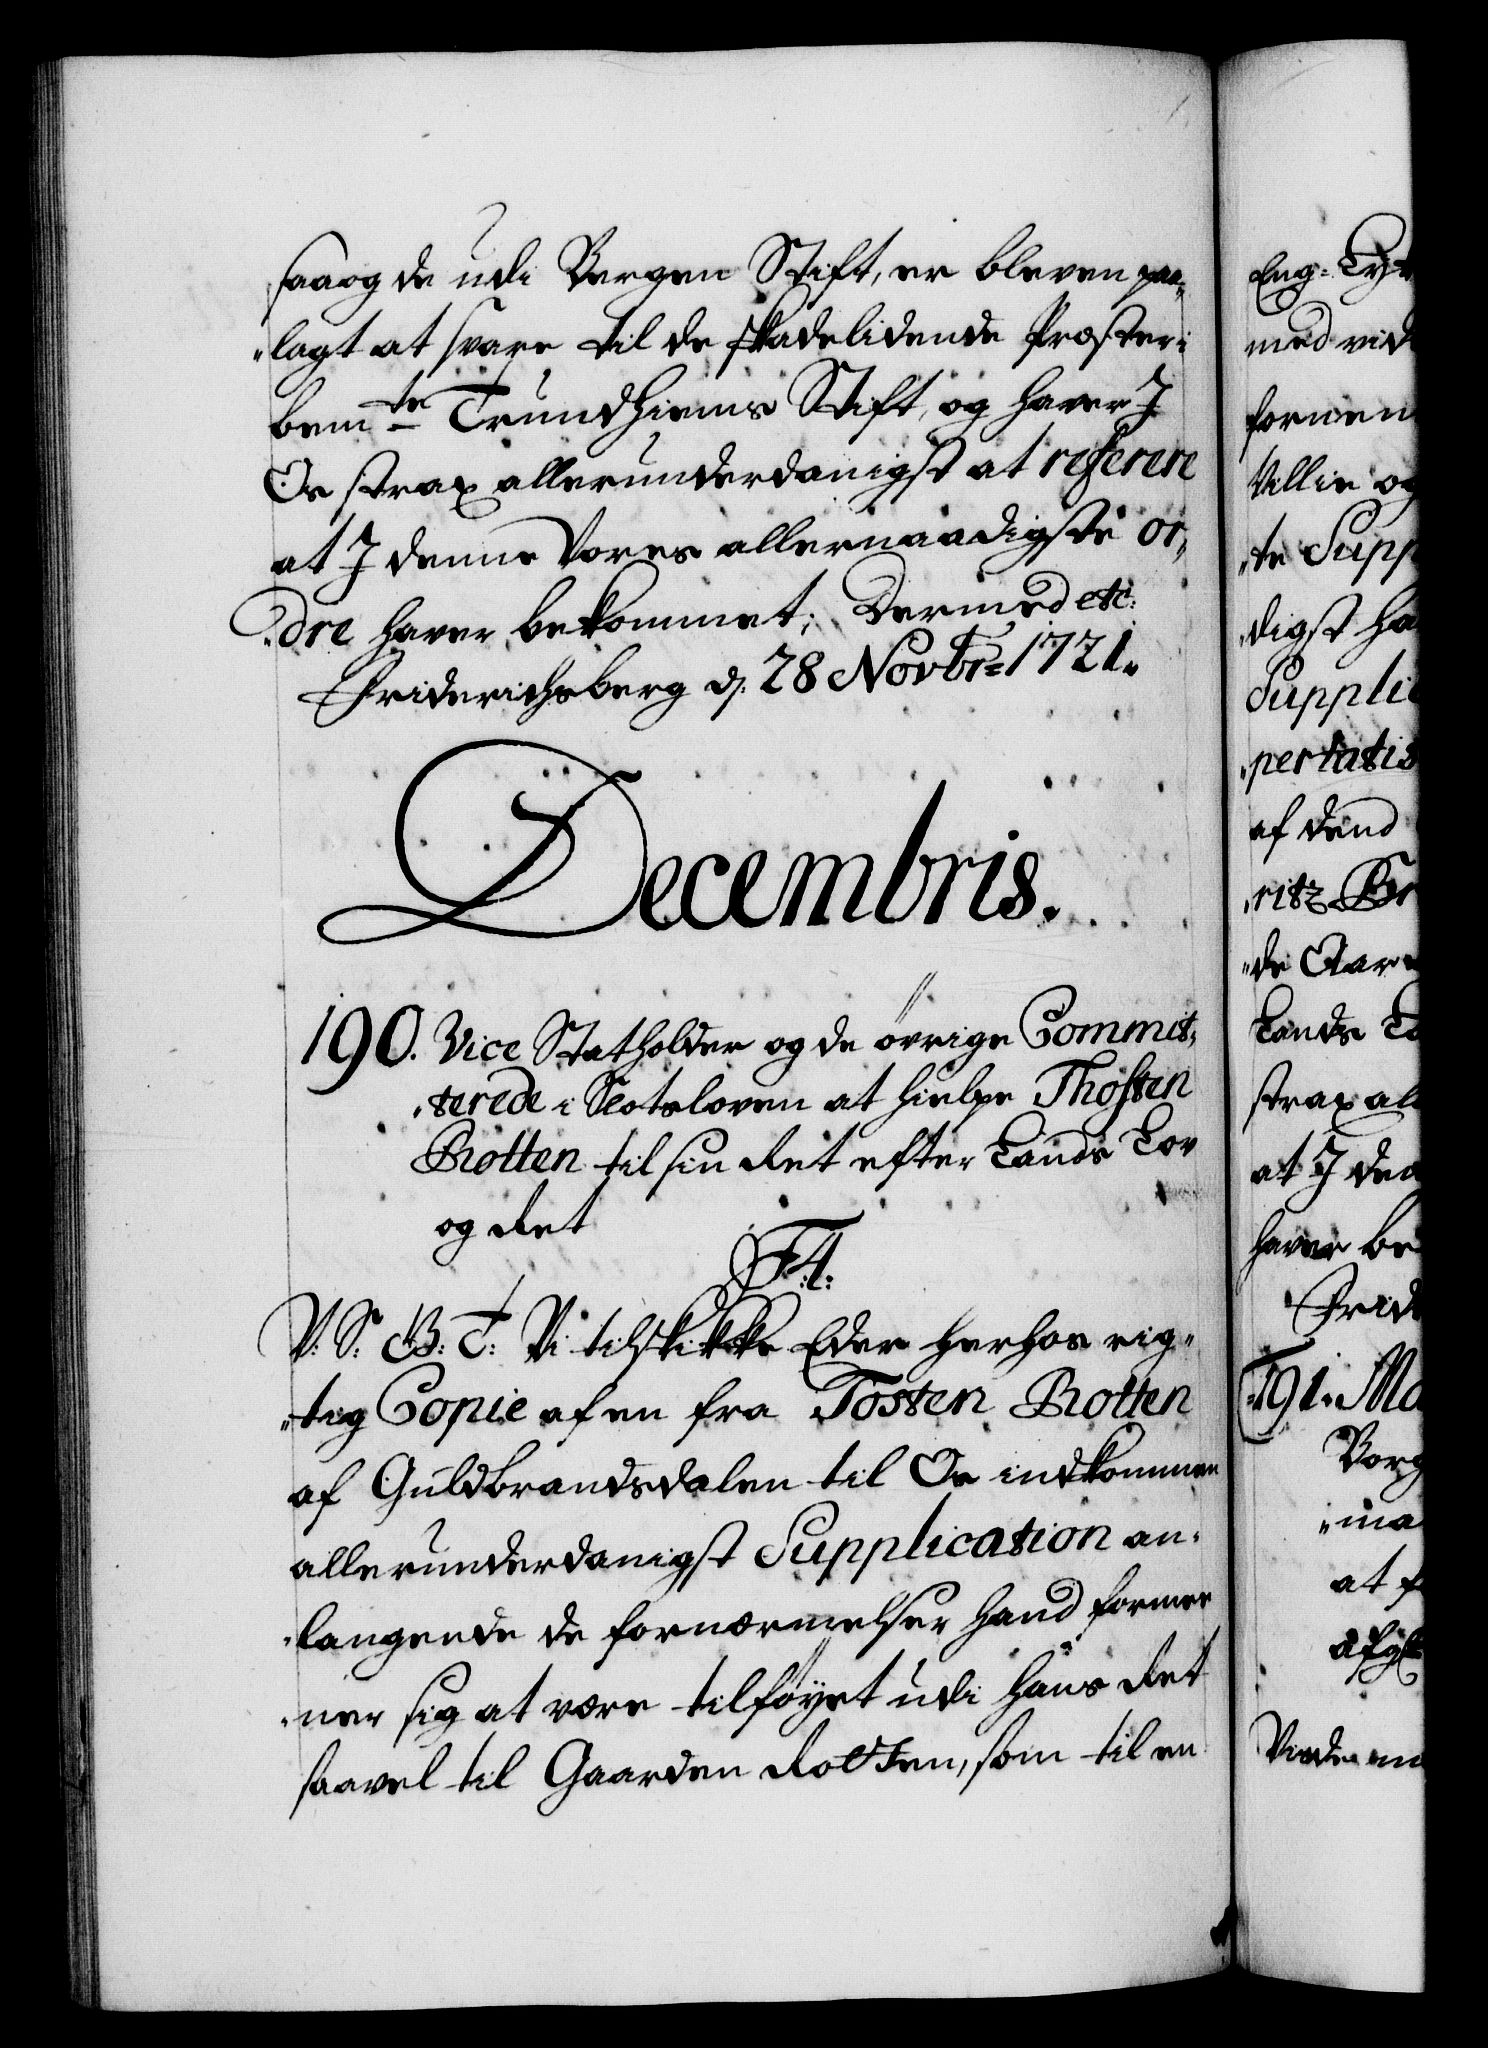 saa og de udi Bergen Stift, er bleven paa„
„lagt at svare til de skadelidende Præster i
bem<sup>te</sup> Trundhiems Stift, og haver I
Os strax allerunderdanigst at referere
at I denne Vores allernaadigste or„
„dre haver bekommet; Dermed etc:
Friderichsberg d: 28 Novbr: 1721.
Decembris.
190. Vice Statholder og de øvrige Commit„
„terede i Slotsloven at hielpe Thosten
Rotten til sin Ret efter Lands Lov
og Ret
F. 4.
V: S: G: T: Vi tilskikke Eder herhos rig„
„tig Copie af en fra Tosten Rotten
af Guldbrandsdalen til Os indkommen
allerunderdanigst Supplication an„
„langende de fornærmelser hand formee
„ner sig at være tilføyet udi hans Ret
saavel til Gaarden Rotten, som til en
Eng:
med vid
formen
Villie og
„te Supp
„digst ha
Supplic
„pertatis
af dend
„de Aar
Lands Lo
strax all
at I den
haver be
Frid
191. Ma
Borg
„ma
at f